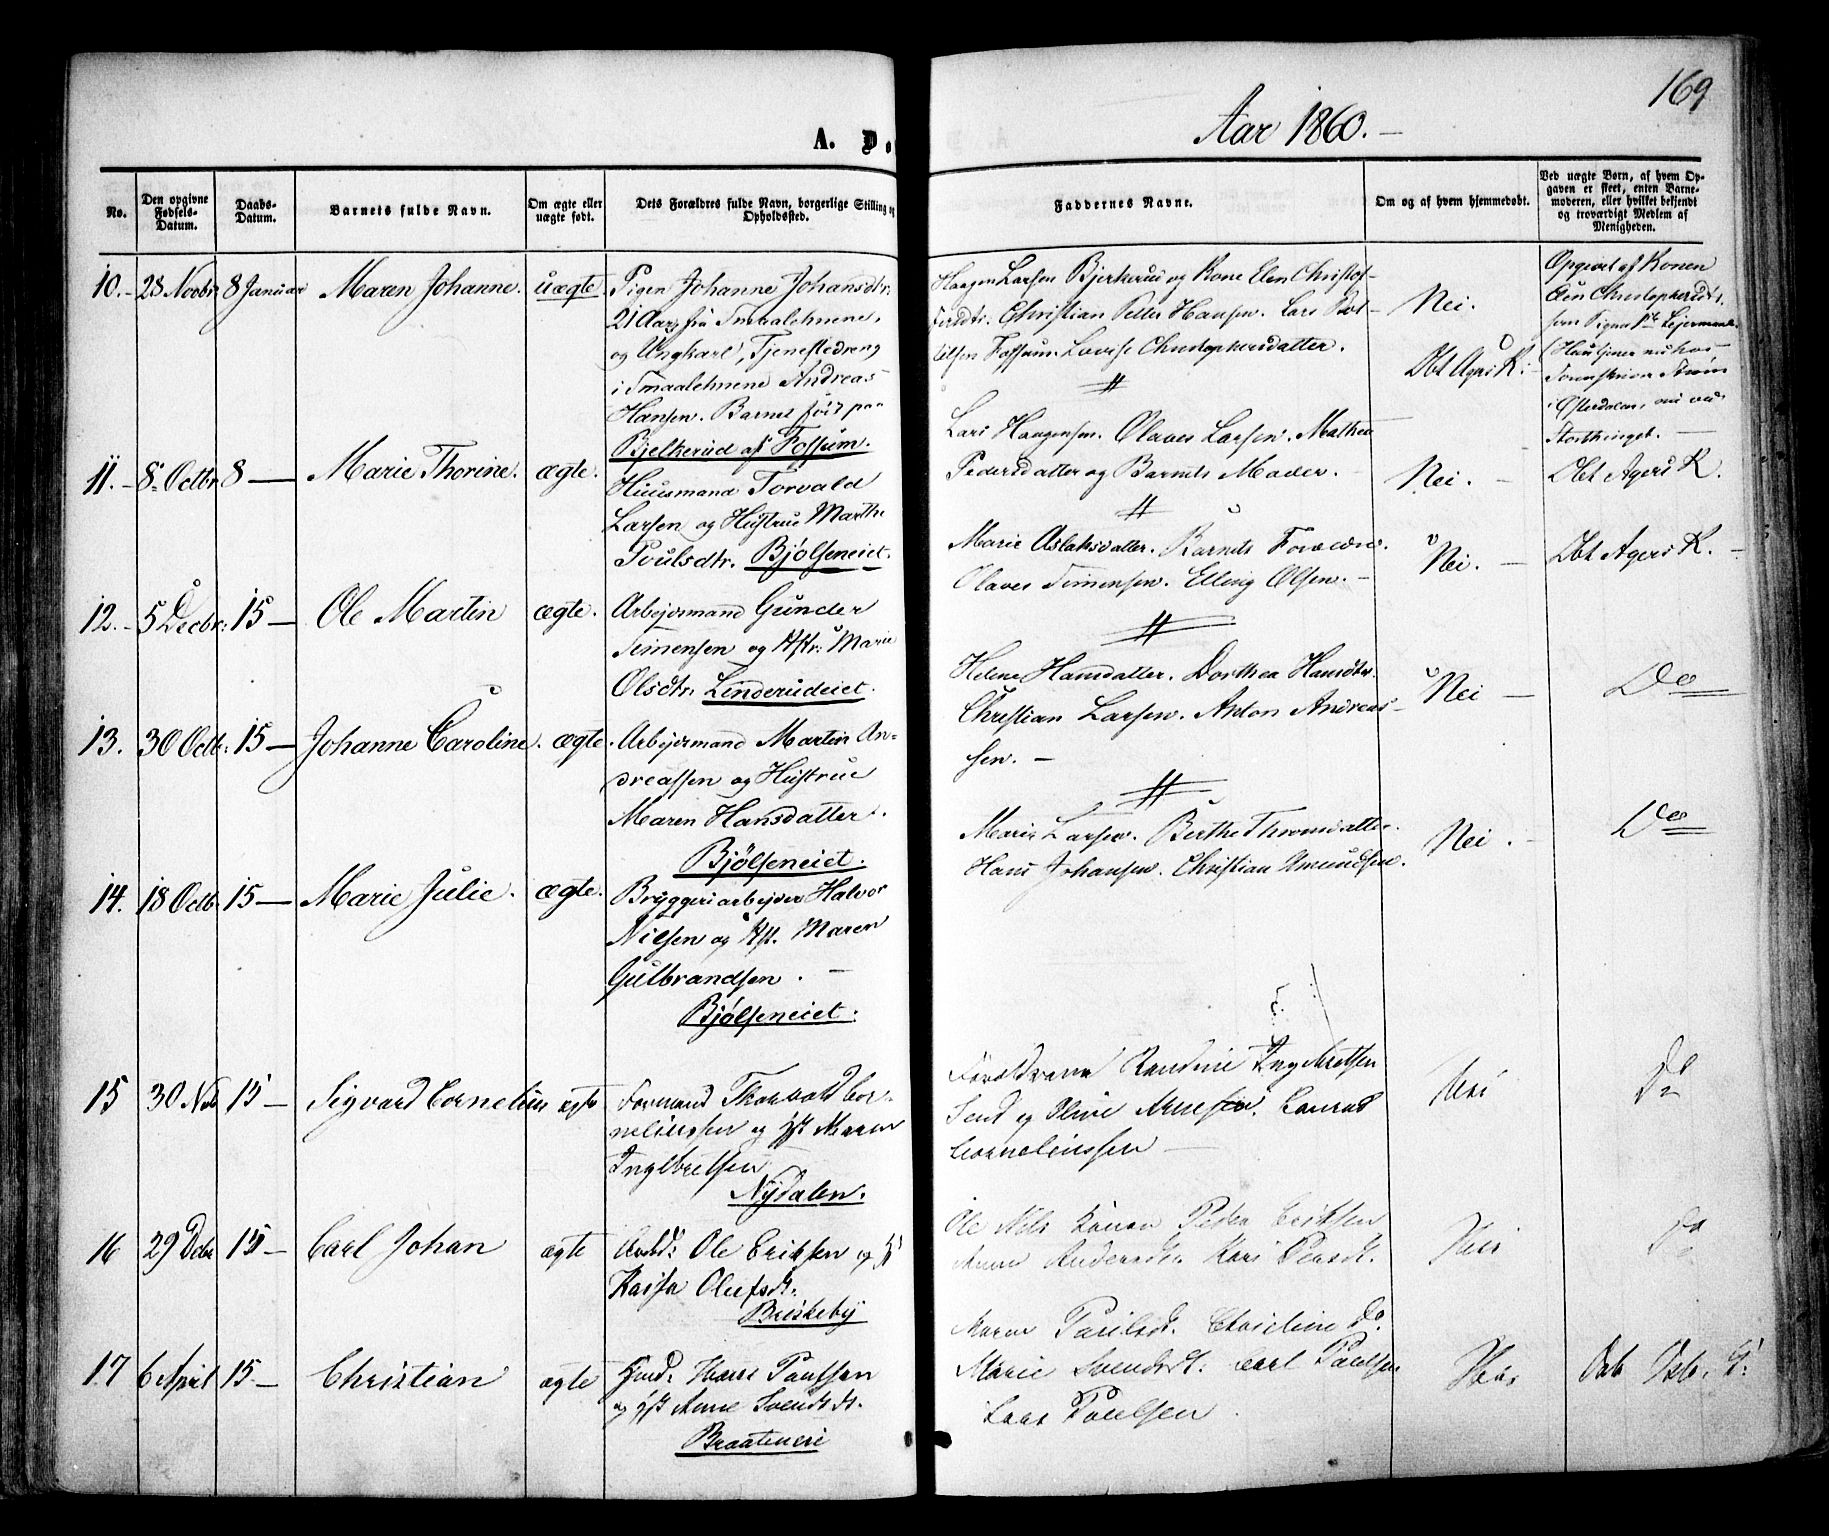 169
Aar 1860.
A. D.
No.
Den opgivne Fødsels-Datum.
Daabs-Datum.
Barnets fulde Navn.
Om ægte eller uægte født.
Dets Forældres fulde Navn, borgerlige Stilling og Opholdssted.
Faddernes Navne.
Om og af hvem hjemmedøbt.
Ved uægte Børn, af hvem Op-
gaven er skeet, enten Barne-
moderen, eller hvilket bekjendt
og troværdigt Medlem af
Menigheden.
10. 28 Novbr 8 Januar Maren Johanne. uægte.
Pigen Johanne Johansdtr.
21 Aar, fra Smaalehnene,
og Ungkarl, Tjenestedreng
i Smaalehnene Andreas
Hansen. Barnet født paa
Bjelkerud af Fossum.
Haagen Larsen Bjerkerud og Kone Elen Christof-
ferdtr. Christian Petter Hansen. Lars
Fossum. Lovise Christophersdatter.
Nei.
Dbt Agers K.
Opgivet af Konen
11. 8 Octbr 8 Marie Thorine. ægte.
Huusmand Torvald
Larsen og Hustrue Marthe
Poulsdtr. Bjølseneiet.
Lars Haagensen. Olaves Larsen. Mathea
Pedersdatter og Barnets Moder.
Nei.
Dbt Agers K.
12. 5 Decbr: 15 Ole Martin ægte.
Arbeidsmand Gunder
Simensen og Hstr: Marie
Olsdtr. Linderudeiet.
Marie Aslaksdatter. Barnets
Olaves Simensen. Elling Olsen.
Nei.
Dbt Agers K.
13. 30 Octbr: 15 Johanne Caroline. ægte.
Arbeidsmand Martin An-
dreassen og Hustrue
Maren Hansdatter.
Bjølseneiet.
Helene Hansdatter. Dorthea Hansdtr.
Christian Larsen. Anton Andreas-
sen.
Nei
Do
14. 18 Octb. 15 Marie Julie. ægte.
Bryggeriarbejder Halvor
Nielsen og Hst. Maren
Gulbrandsen.
Bjølseneiet.
Marie Larsen. Berthe Thronsdatter.
Hans Johansen. Christian Amundsen.
Nei.
Do
15 30 Nov 15 Sigvard Cornelius ægte
Formand Thorvald Cor-
neliussen og Hst Maren
Ingebretsen
Nydalen.
Forældrene Randine Ingebretsen
og Oline Arnesen. Conrad
Corneliussen
Nei
Do
16 29 Debr 15 Carl Johan ægte
Arbd: Ole Eriksen og H
Kaisa Olufsdt.
Briskeby
Ole Nils Peder Eriksen
Anne Andersdt. Kari
Nei
Do
17 6 April 15 Christian ægte
Hans Paulsen
og Hst Anne Svendsdt.
Braateneie
Maren Paulsdt. Christine Do.
Marie Svendsdt. Carl Paulsen
Lars Paulsen
Nei